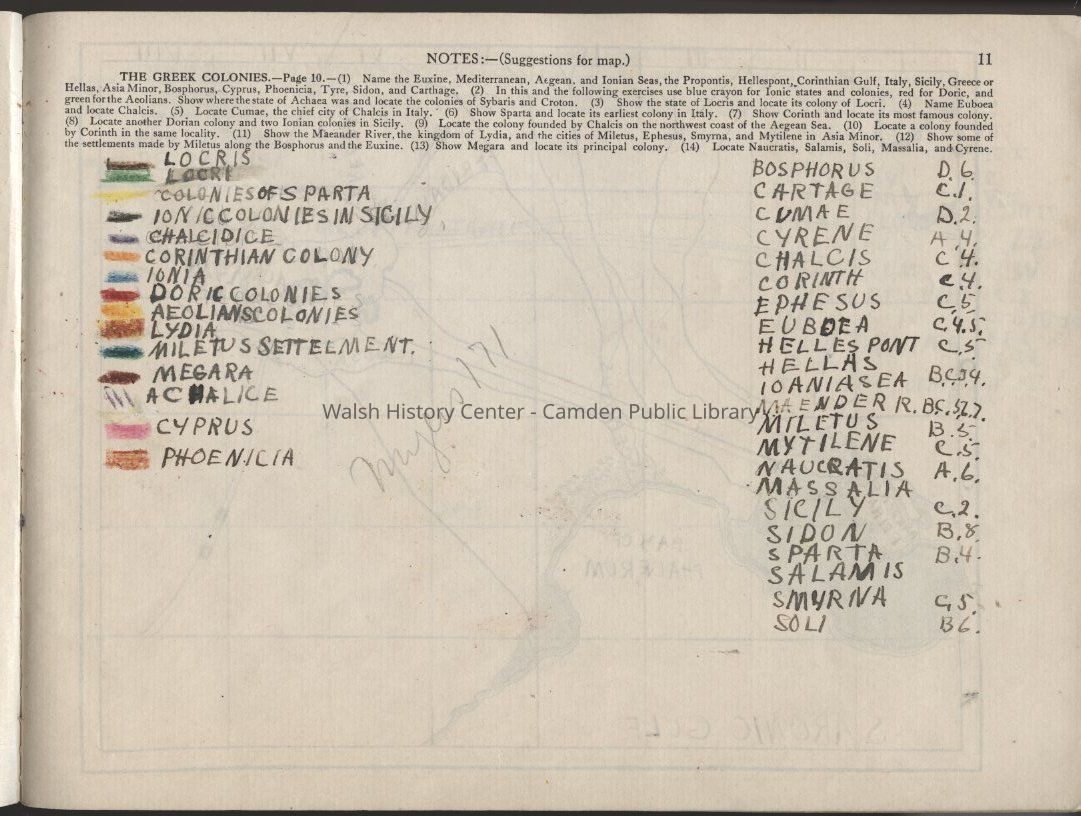 NOTES:—(Suggestions for map.) 11
THE GREEK COLONIES.—Page 10.—(1) Name the Euxine, Mediterranean, Aegean, and Ionian Seas, the Propontis, Hellespont, Corinthian Gulf, Italy, Sicily, Greece or
Hellas, Asia Minor, Bosphorus, Cyprus, Phoenicia, Tyre, Sidon, and Carthage. (2) In this and the following exercises use blue crayon for Ionic states and colonies, red for Doric, and
green for the Aeolians. Show where the state of Achaea was and locate the colonies of Sybaris and Croton. (3) Show the state of Locris and locate its colony of Locri. (4) Name Euboea
and locate Chalcis. (5) Locate Cumae, the chief city of Chalcis in Italy. (6) Show Sparta and locate its earliest colony in Italy. (7) Show Corinth and locate its most famous colony.
(8) Locate another Dorian colony and two Ionian colonies in Sicily. (9) Locate the colony founded by Chalcis on the northwest coast of the Aegean Sea. (10) Locate a colony founded
by Corinth in the same locality. (11) Show the Maeander River, the kingdom of Lydia, and the cities of Miletus, Ephesus, Smyrna, and Mytilene in Asia Minor. (12) Show some of
the settlements made by Miletus along the Bosphorus and the Euxine. (13) Show Megara and locate its principal colony. (14) Locate Naucratis, Salamis, Soli, Massalia, and Cyrene.
LOCRIS
LOCRI
COLONIES OF SPARTA
IONIC COLONIES IN SICILY
CHALCIDICE
CORINTHIAN COLONY
IONIA
DORIC COLONIES
AEOLIANS COLONIES
LYDIA
MILETUS SETTELMENT.
MEGARA
ACHALICE
CYPRUS
PHOENICIA
BOSPHORUS D.6.
CARTAGE C.1.
CUMAE D.2.
CYRENE A.4.
CHALCIS C.4.
CORINTH C.4.
EPHESUS C.5
EUBOEA C.4.5.
HELLES PONT C.5
HELLAS
IOANIA SEA B.C.3.4.
MAENDER R.
MILETUS B.5.
MYTILENE C.5.
NAUCRATIS A.6.
MASSALIA
SICILY C.2.
SIDON B.8.
SPARTA B.4.
SALAMIS
SMYRNA C.5.
SOLI B6.
Walsh History Center - Camden Public Library
SARONIC GULF
BAY OF
PHALERUM